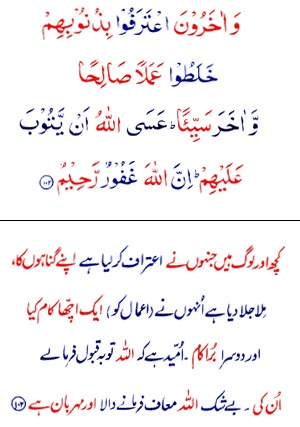 وَاٰخَرُوۡنَ اعۡتَرَفُوۡا بِذُنُوۡبِهِمۡ
خَلَطُوۡا عَمَلًا صَالِحًا
وَّاٰخَرَ سَيِّئًا ؕ عَسَى اللّٰهُ اَنۡ يَّتُوۡبَ
عَلَيۡهِمۡ ؕ اِنَّ اللّٰهَ غَفُوۡرٌ رَّحِيۡمٌ ۝۱۰۲
کچھ اور لوگ ہیں جنہوں نے اعتراف کر لیا ہے اپنے گناہوں کا،
مِلا جلا دیا ہے اُنہوں نے (اعمال کو) ایک اچّھا کام کیا
اور دوسرا بُرا کام ۔ اُمّید ہے کہ اللہ توبہ قبول فرمالے
اُن کی ۔ بے شک اللہ معاف فرمانے والا اور مہربان ہے ۝۱۰۲